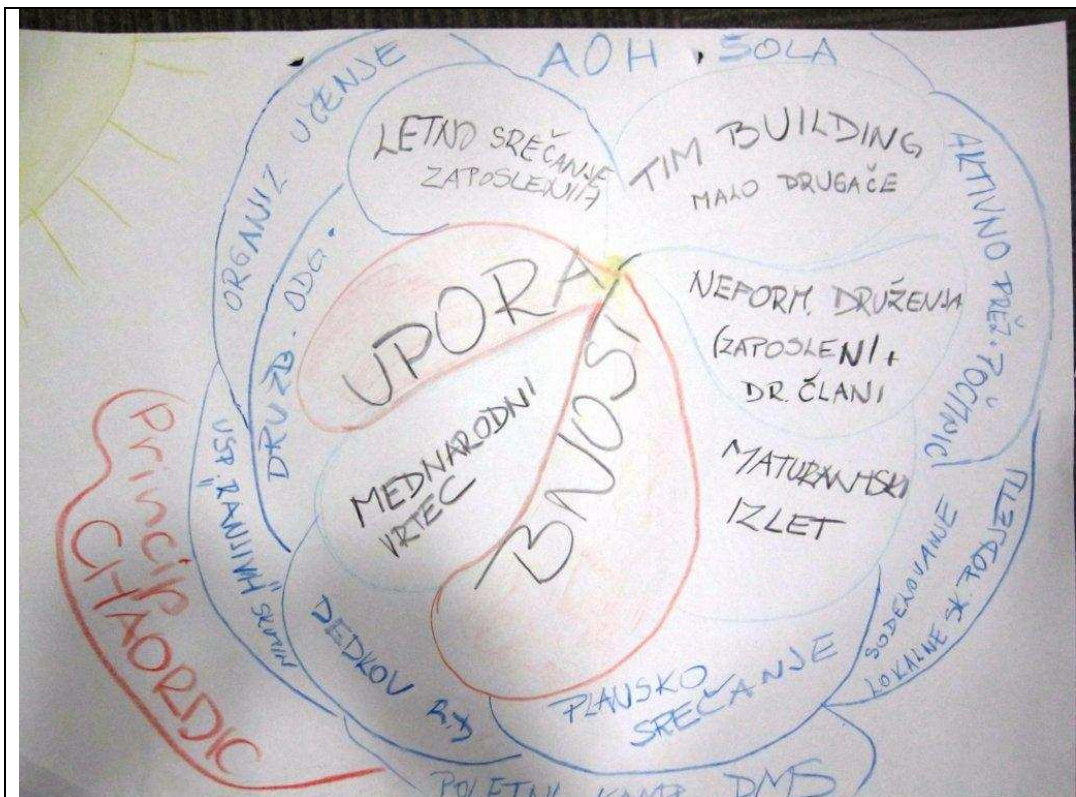 AOH, ŠOLA
ORGANIZ UČENJE
LETNO SREČANJE
ZAPOSLENIH
TIM BUILDING
MALO DRUGAČE
AKTIVNO PREŽ. POČITNIC
DRUŽB. ODG.
UPORA
BNOSI
NEFORM. DRUŽENJA
(ZAPOSLENI +
DR. ČLANI
MEDNARODNI
VRTEC
MATURANTSKI
IZLET
Princip
CHAORDIC
USP. "RANJIVIH" SKUPIN
DEDKOV R.D
PLANSKO
SREČANJE
SODELOVANJE
LOKALNE SK. PODJETJI
POLETNI KAMP DMS